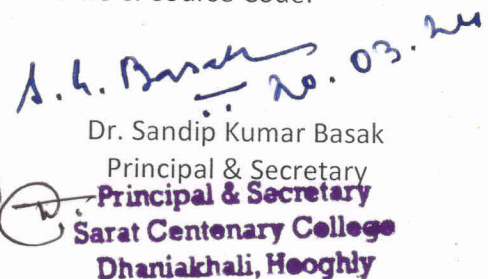 & Source Code.
S. K. Basak
20.03.24
Dr. Sandip Kumar Basak
Principal & Secretary
Principal & Secretary
Sarat Centenary College
Dhaniakhali, Hooghly